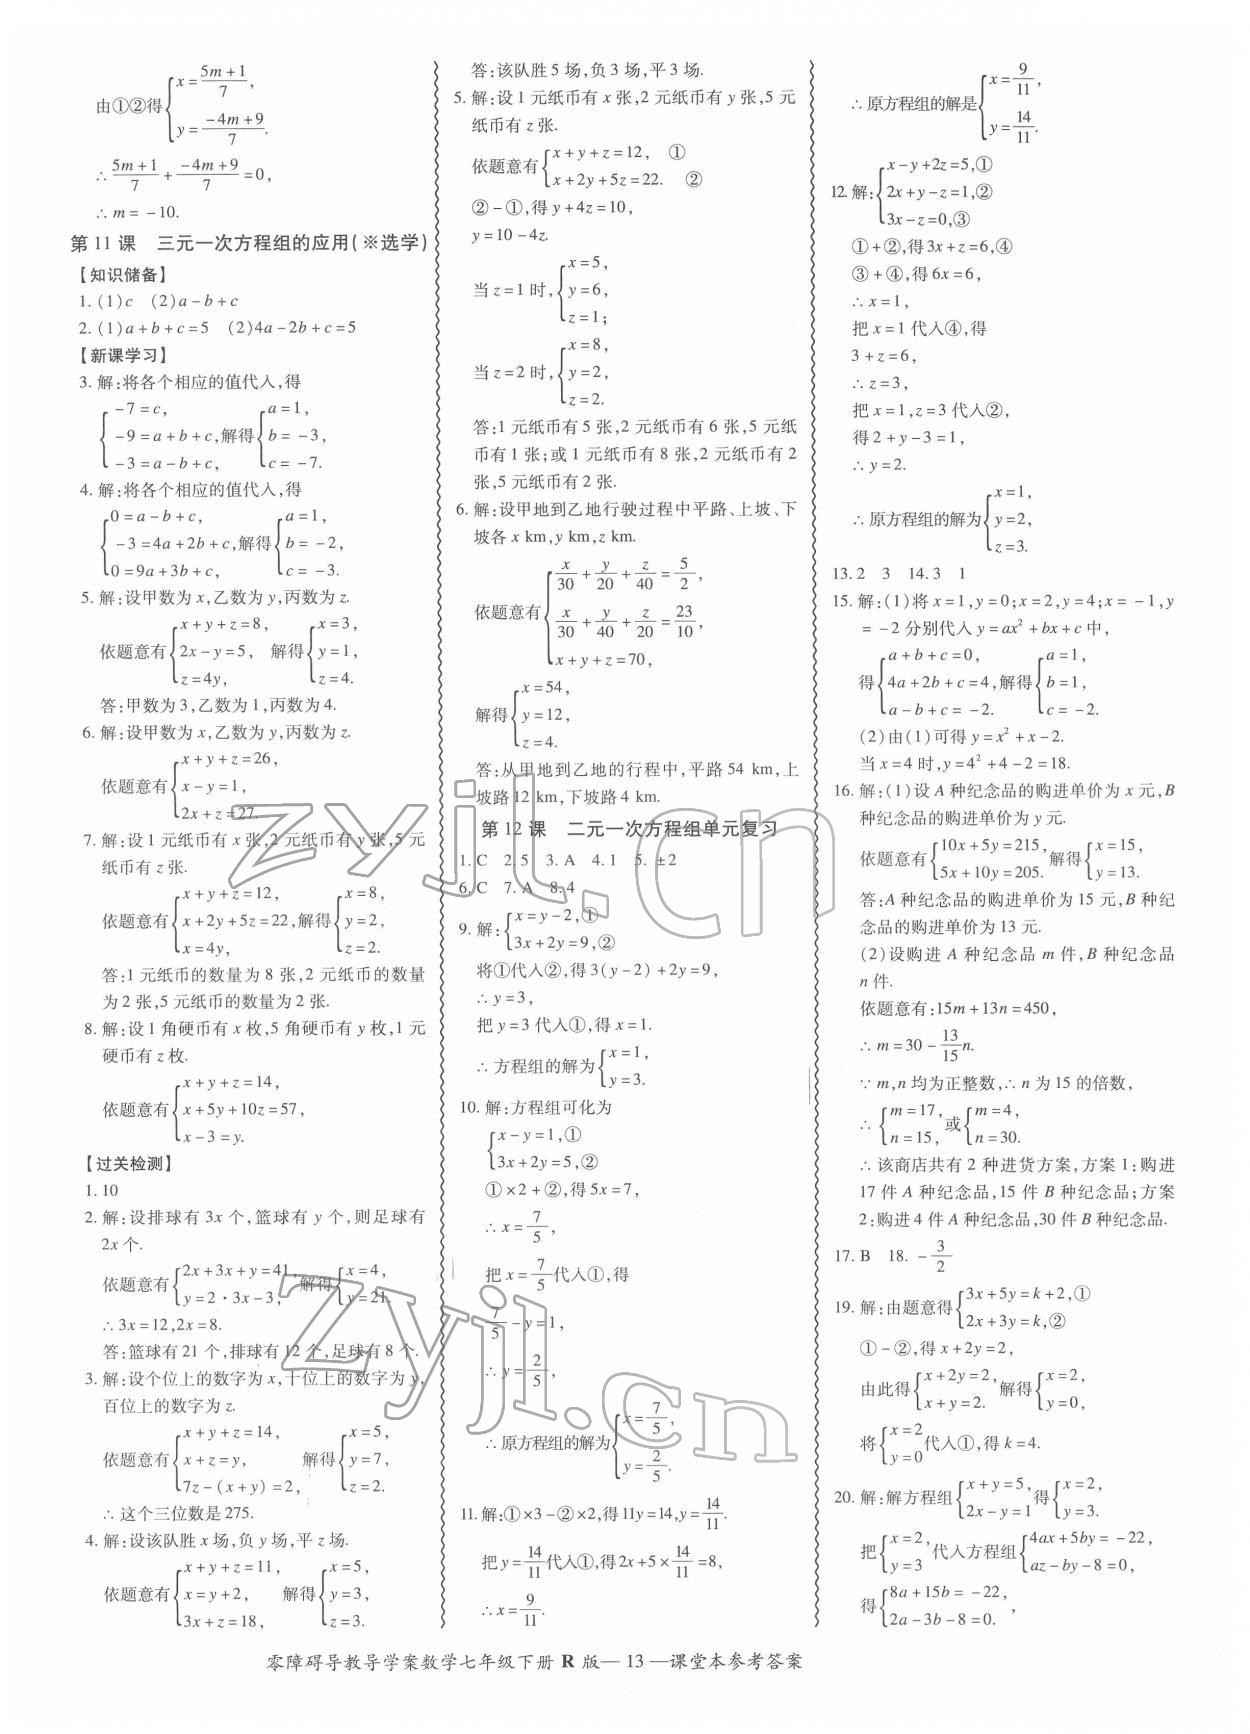 由①②得{x=(5m+1)/7,
y=(-4m+9)/7.
∴(5m+1)/7+(-4m+9)/7=0,
∴m=-10.
第11课 三元一次方程组的应用(※选学)
【知识储备】
1.(1)c (2)a-b+c
2.(1)a+b+c=5 (2)4a-2b+c=5
【新课学习】
3.解:将各个相应的值代入,得
{-7=c, {a=1,
-9=a+b+c,解得 b=-3,
-3=a-b+c, c=-7.
4.解:将各个相应的值代入,得
{0=a-b+c, {a=1,
-3=4a+2b+c,解得 b=-2,
0=9a+3b+c, c=-3.
5.解:设甲数为x,乙数为y,丙数为z.
{x+y+z=8, {x=3,
依题意有 2x-y=5, 解得 y=1,
z=4y, z=4.
答:甲数为3,乙数为1,丙数为4.
6.解:设甲数为x,乙数为y,丙数为z.
{x+y+z=26,
依题意有 x-y=1,
2x+z=27.
7.解:设1元纸币有x张,2元纸币有y张,5元
纸币有z张.
{x+y+z=12, {x=8,
依题意有 x+2y+5z=22,解得 y=2,
x=4y, z=2.
答:1元纸币的数量为8张,2元纸币的数量
为2张,5元纸币的数量为2张.
8.解:设1角硬币有x枚,5角硬币有y枚,1元
硬币有z枚.
{x+y+z=14,
依题意有 x+5y+10z=57,
x-3=y.
【过关检测】
1.10
2.解:设排球有3x个,篮球有y个,则足球有
2x个.
依题意有{2x+3x+y=41, 解得{x=4,
y=2·3x-3, y=21.
∴3x=12,2x=8.
答:篮球有21个,排球有12个,足球有8个.
3.解:设个位上的数字为x,十位上的数字为y,
百位上的数字为z.
{x+y+z=14, {x=5,
依题意有 x+z=y, 解得 y=7,
7z-(x+y)=2, z=2.
∴这个三位数是275.
4.解:设该队胜x场,负y场,平z场.
{x+y+z=11, {x=5,
依题意有 x=y+2, 解得 y=3,
3x+z=18, z=3.
答:该队胜5场,负3场,平3场.
5.解:设1元纸币有x张,2元纸币有y张,5元
纸币有z张.
依题意有{x+y+z=12, ①
x+2y+5z=22. ②
②-①,得y+4z=10,
y=10-4z.
{x=5,
当z=1时, y=6,
z=1;
{x=8,
当z=2时, y=2,
z=2.
答:1元纸币有5张,2元纸币有6张,5元纸
币有1张;或1元纸币有8张,2元纸币有2
张,5元纸币有2张.
6.解:设甲地到乙地行驶过程中平路、上坡、下
坡各x km,y km,z km.
{x/30+y/20+z/40=5/2,
依题意有 x/30+y/40+z/20=23/10,
x+y+z=70,
{x=54,
解得 y=12,
z=4.
答:从甲地到乙地的行程中,平路54 km,上
坡路12 km,下坡路4 km.
第12课 二元一次方程组单元复习
1.C 2.5 3.A 4.1 5.±2
6.C 7.A 8.4
9.解:{x=y-2,①
3x+2y=9,②
将①代入②,得3(y-2)+2y=9,
∴y=3,
把y=3代入①,得x=1.
∴方程组的解为{x=1,
y=3.
10.解:方程组可化为
{x-y=1,①
3x+2y=5,②
①×2+②,得5x=7,
∴x=7/5,
把x=7/5代入①,得
7/5-y=1,
∴y=2/5,
∴原方程组的解为{x=7/5,
y=2/5.
11.解:①×3-②×2,得11y=14,y=14/11.
把y=14/11代入①,得2x+5×14/11=8,
∴x=9/11.
∴原方程组的解是{x=9/11,
y=14/11.
{x-y+2z=5,①
12.解: 2x+y-z=1,②
3x-z=0,③
①+②,得3x+z=6,④
③+④,得6x=6,
∴x=1,
把x=1代入④,得
3+z=6,
∴z=3,
把x=1,z=3代入②,
得2+y-3=1,
∴y=2.
{x=1,
∴原方程组的解为 y=2,
z=3.
13.2 3 14.3 1
15.解:(1)将x=1,y=0;x=2,y=4;x=-1,y
=-2分别代入y=ax²+bx+c中,
{a+b+c=0, {a=1,
得 4a+2b+c=4,解得 b=1,
a-b+c=-2. c=-2.
(2)由(1)可得y=x²+x-2.
当x=4时,y=4²+4-2=18.
16.解:(1)设A种纪念品的购进单价为x元,B
种纪念品的购进单价为y元.
依题意有{10x+5y=215, 解得{x=15,
5x+10y=205. y=13.
答:A种纪念品的购进单价为15元,B种纪
念品的购进单价为13元.
(2)设购进A种纪念品m件,B种纪念品
n件.
依题意有:15m+13n=450,
∴m=30-13/15n.
∵m,n均为正整数,∴n为15的倍数,
∴{m=17, 或{m=4,
n=15, n=30.
∴该商店共有2种进货方案,方案1:购进
17件A种纪念品,15件B种纪念品;方案
2:购进4件A种纪念品,30件B种纪念品.
17.B 18.-3/2
19.解:由题意得{3x+5y=k+2,①
2x+3y=k,②
①-②,得x+2y=2,
由此得{x+2y=2, 解得{x=2,
x+y=2. y=0,
将{x=2 代入①,得k=4.
y=0
20.解:解方程组{x+y=5, 得{x=2,
2x-y=1 y=3.
把{x=2, 代入方程组{4ax+5by=-22,
y=3 ax-by-8=0,
得{8a+15b=-22,
2a-3b-8=0.,
零障碍导教导学案数学七年级下册R版—13—课堂本参考答案
zyjl.cn
zyjl.cn